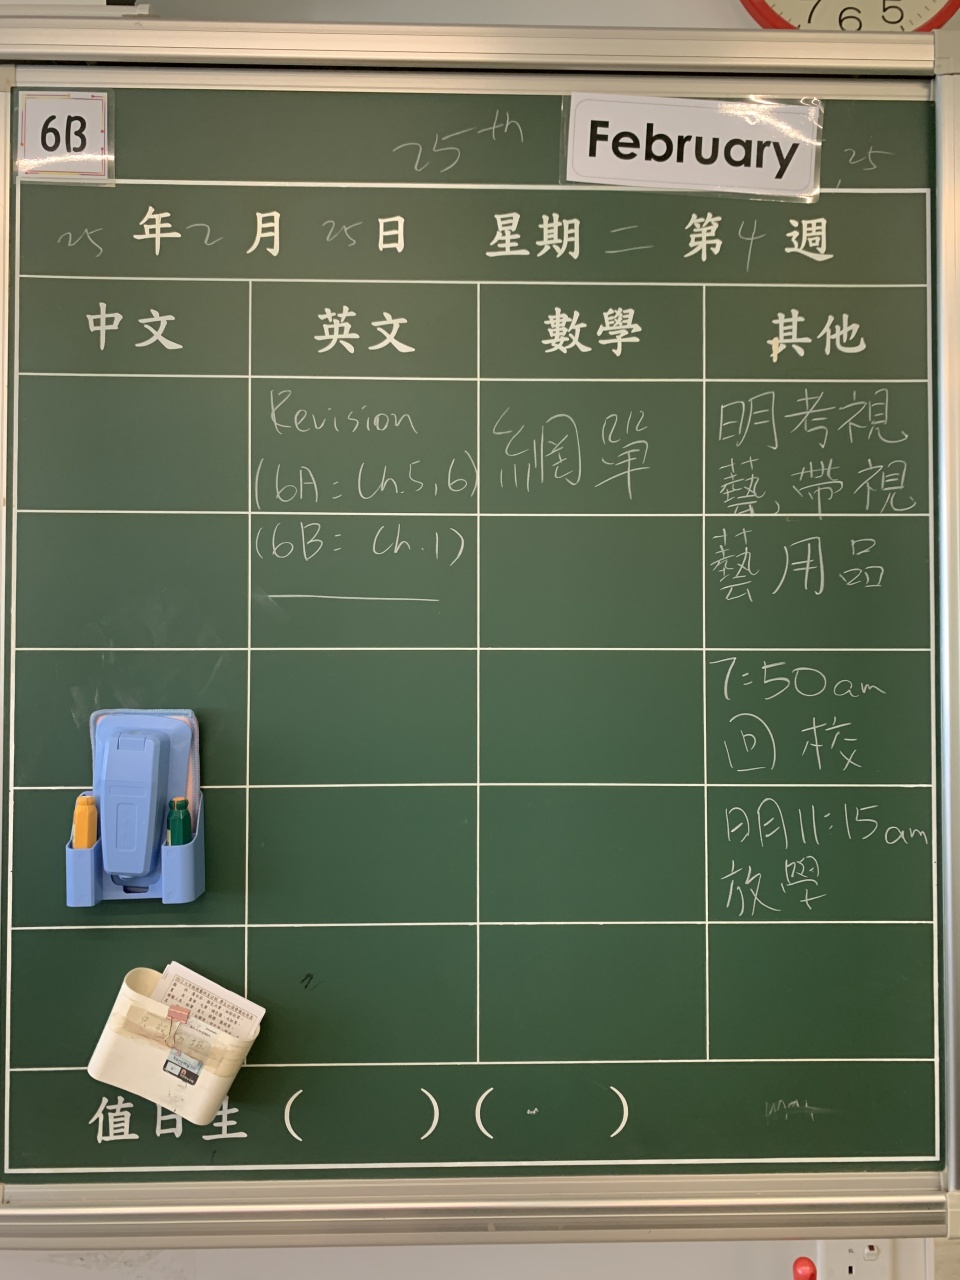 7 6 5
6B
25th February, 25
25年2月25日 星期二 第4週
中文 英文 數學 其他
Revision
(6A: Ch.5,6)
(6B: Ch.1)
網單
明考視
藝,帶視
藝用品
7:50am
回校
明11:15am
放學
值日生 ( ) ( )